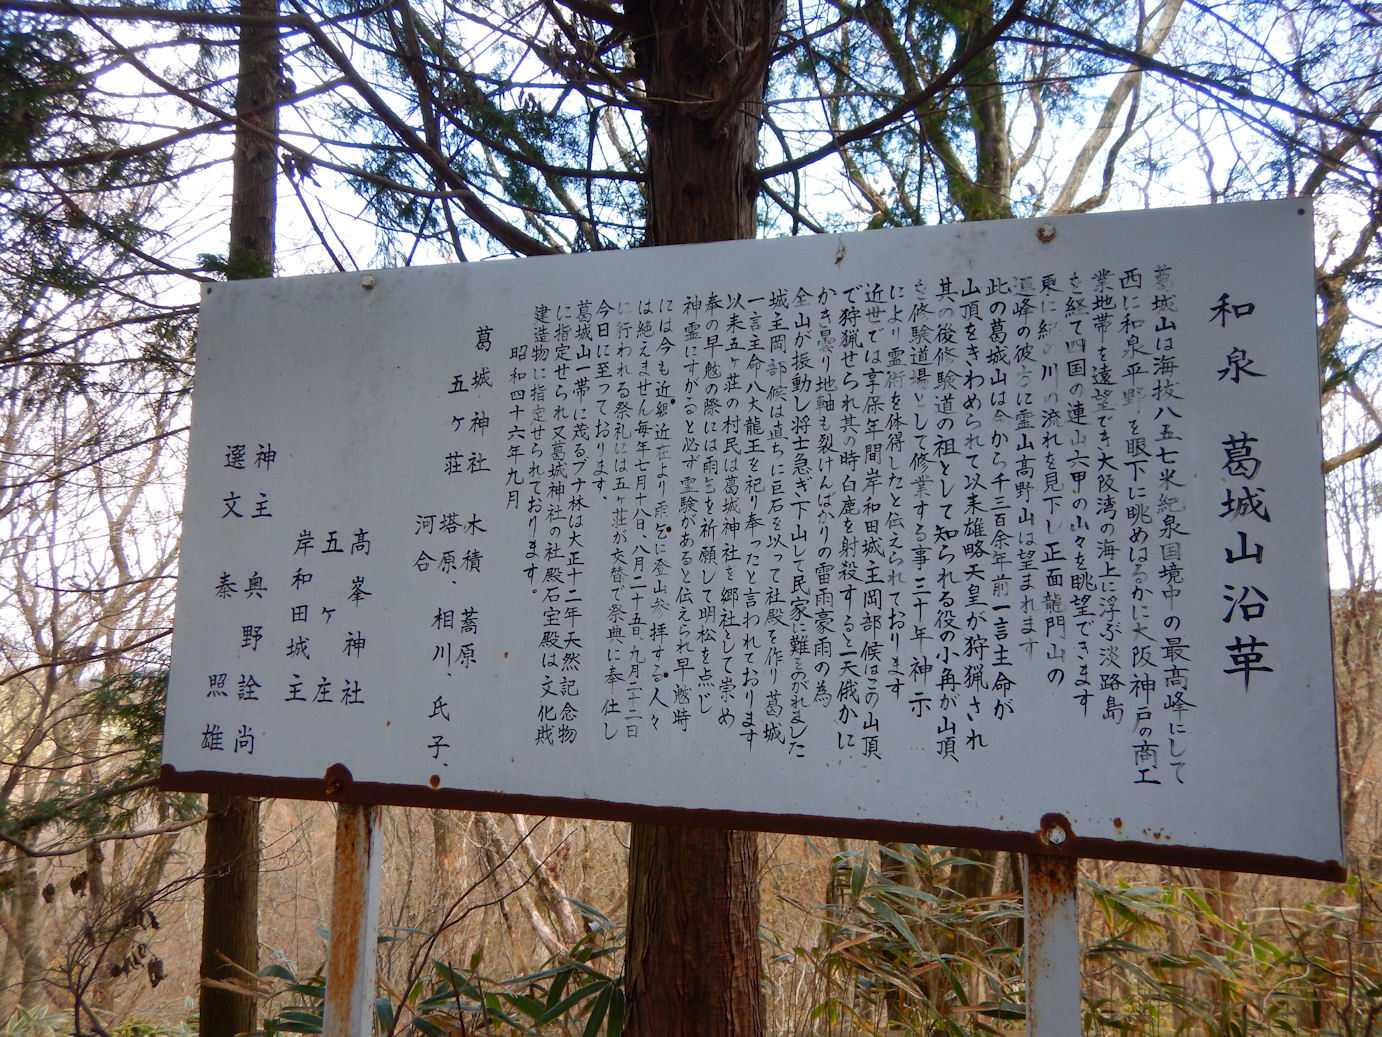 和泉葛城山沿革
葛城山は海抜八五七米紀泉国境中の最高峰にして
西に和泉平野を眼下に眺めはるかに大阪神戸の商工
業地帯を遠望でき大阪湾の海上に浮ぶ淡路島
を経て四国の連山六甲の山々を眺望できます
更に紀の川の流れを見下し正面龍門山の
連峰の彼方に霊山高野山は望まれます
此の葛城山は今から千三百余年前一言主命が
山頂をきわめられて以来雄略天皇が狩猟され
其の後修験道の祖として知られる役の小角が山頂
を修験道場として修業する事三十年神示
により霊術を体得したと伝えられております
近世では享保年間岸和田城主岡部候はこの山頂
で狩猟せられ其の時白鹿を射殺すると一天俄かに
かき曇り地軸も裂けんばかりの雷雨豪雨の為
全山が振動し将士急ぎ下山して民家に難をのがれました
城主岡部候は直ちに巨石を以って社殿を作り葛城
一言主命八大龍王を祀り奉ったと言われております
以来五ヶ荘の村民は葛城神社を郷社として崇め
奉の早魃の際には雨乞を祈願して明松を点じ
神霊にすがると必ず霊験があると伝えられ早魃時
には今も近郷近在より雨乞に登山参拝する人々
は絶えません毎年七月十八日、八月二十五日、九月二十二日
に行われる祭礼には五ヶ荘が交替で祭典に奉仕し
今日に至っております、
葛城山一帯に茂るブナ林は大正十二年天然記念物
に指定せられ又葛城神社の社殿石宝殿は文化財
建造物に指定せられております。
昭和四十六年九月
葛城神社 木積 蕎原
五ヶ荘 塔原、相川、氏子、
河合
高峯神社
五ヶ庄
岸和田城主
神主 奥野詮尚
選文 秦 照雄